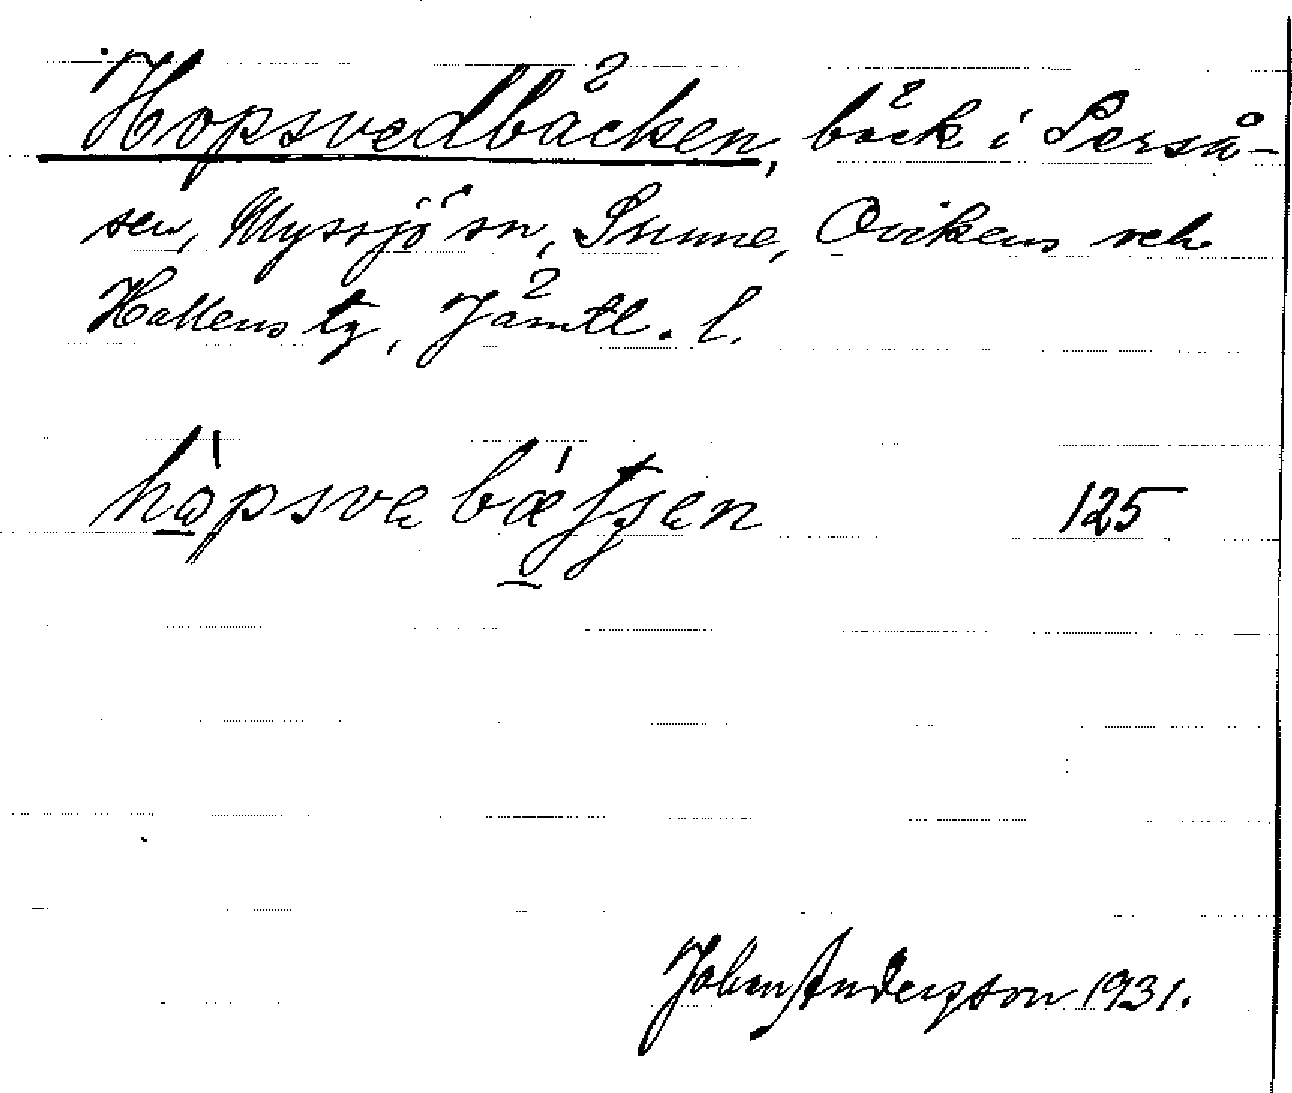 Hopsvedbäcken, bäck i Perså-
sen, Myssjö sn, Sunne, Ovikens och
Hallens tg, Jämtl. l.
håpsve bætʃen 125
Johan Andersson 1931.